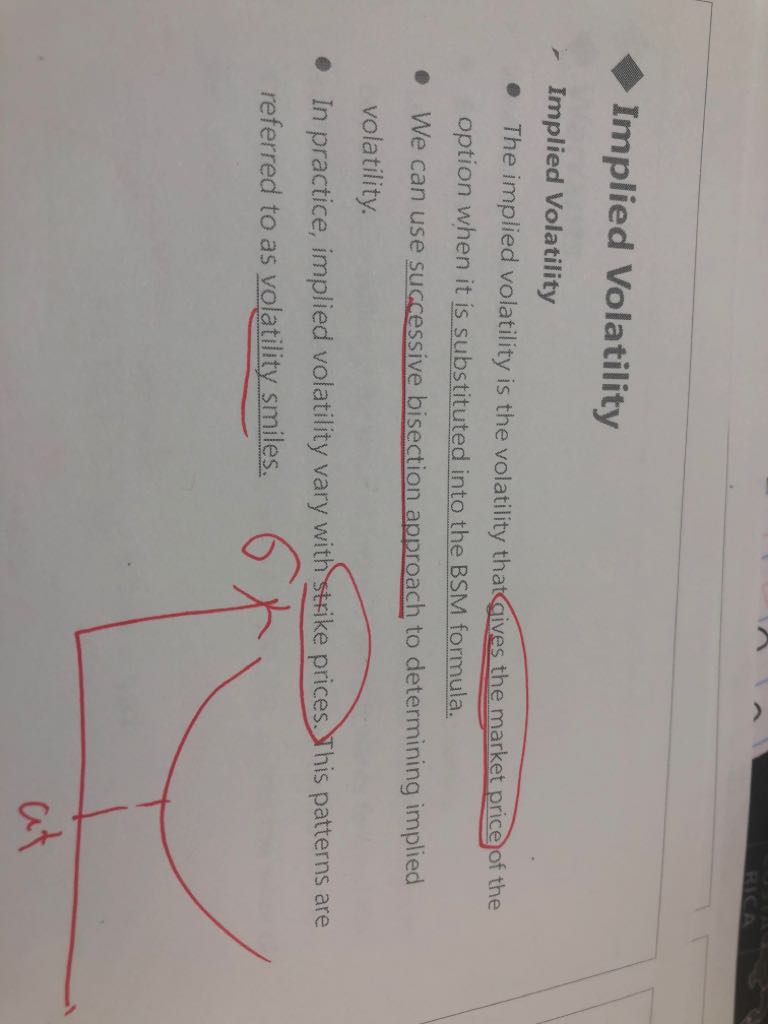 Implied Volatility
Implied Volatility
The implied volatility is the volatility that gives the market price of the
option when it is substituted into the BSM formula.
We can use successive bisection approach to determining implied
volatility.
In practice, implied volatility vary with strike prices. This patterns are
referred to as volatility smiles.
σ
at
RICA